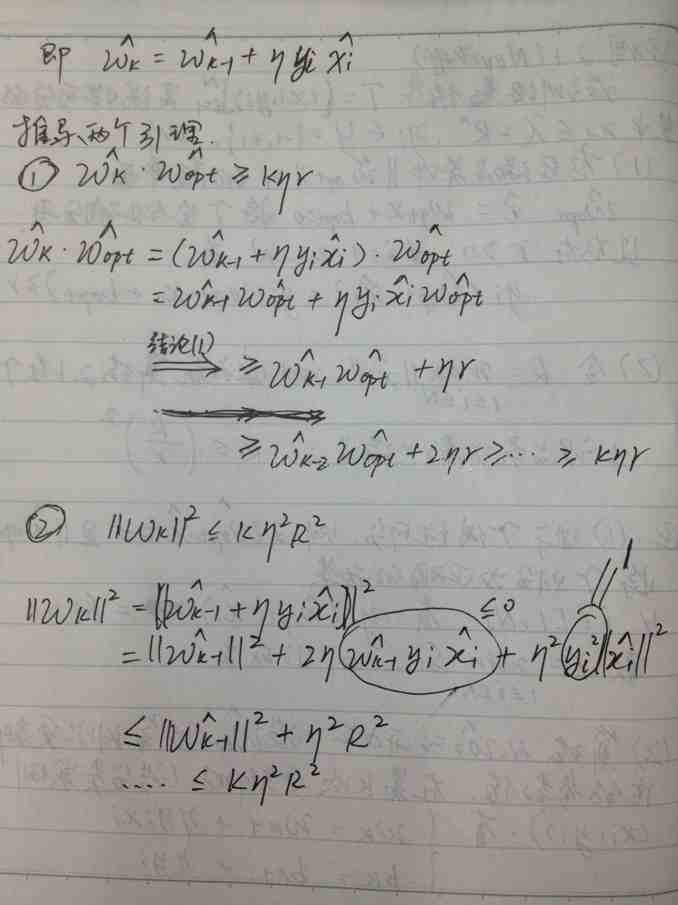 即 ŵk = ŵk-1 + η yi x̂i
推导两个引理.
① ŵk · ŵopt ≥ kηr
ŵk · ŵopt = (ŵk-1 + η yi x̂i) · ŵopt
= ŵk-1 ŵopt + η yi x̂i ŵopt
结论(1) ≥ ŵk-1 ŵopt + ηr
≥ ŵk-2 ŵopt + 2ηr ≥ ··· ≥ kηr
② ||wk||² ≤ kη²R²
||wk||² = ||ŵk-1 + η yi x̂i||²
≤0 1
= ||ŵk-1||² + 2η ŵk-1 yi x̂i + η² yi² ||x̂i||²
≤ ||ŵk-1||² + η²R²
···· ≤ kη²R²